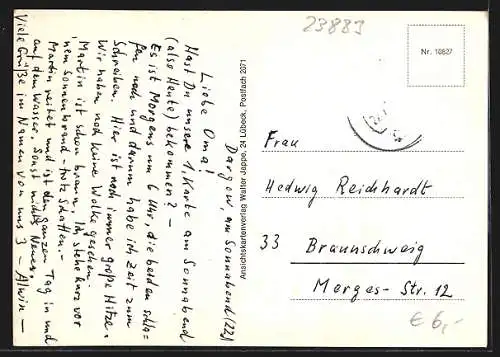 23883
Nr. 10827
Dargow, am Sonnabend (22)
Liebe Oma!
Hast Du unsere 1. Karte am Sonnabend
(also Heute) bekommen? –
Es ist Morgens um 6 Uhr, die beiden schla-
fen noch und darum habe ich Zeit zum
Schreiben. Hier ist noch immer große Hitze.
Wir haben noch keine Wolke gesehen.
Martin ist schon braun. Ich stehe kurz vor
'nem Sonnenbrand – trotz Schatten. –
Martin reitet und ist den ganzen Tag in und
auf dem Wasser. Sonst nichts Neues.
Viele Grüße im Namen von uns 3 – Alwin –
Ansichtskartenverlag Walter Jappe, 24 Lübeck, Postfach 2071
Frau
Hedwig Reichhardt
33 Braunschweig
Merges-Str. 12
€ 6,-